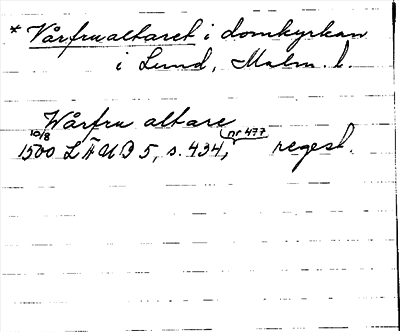 * Vårfrualtaret i domkyrkan
i Lund, Malm. l.
Wårfru altare
10/8 1500 LÄUB 5, s. 434, nr 477 regest.